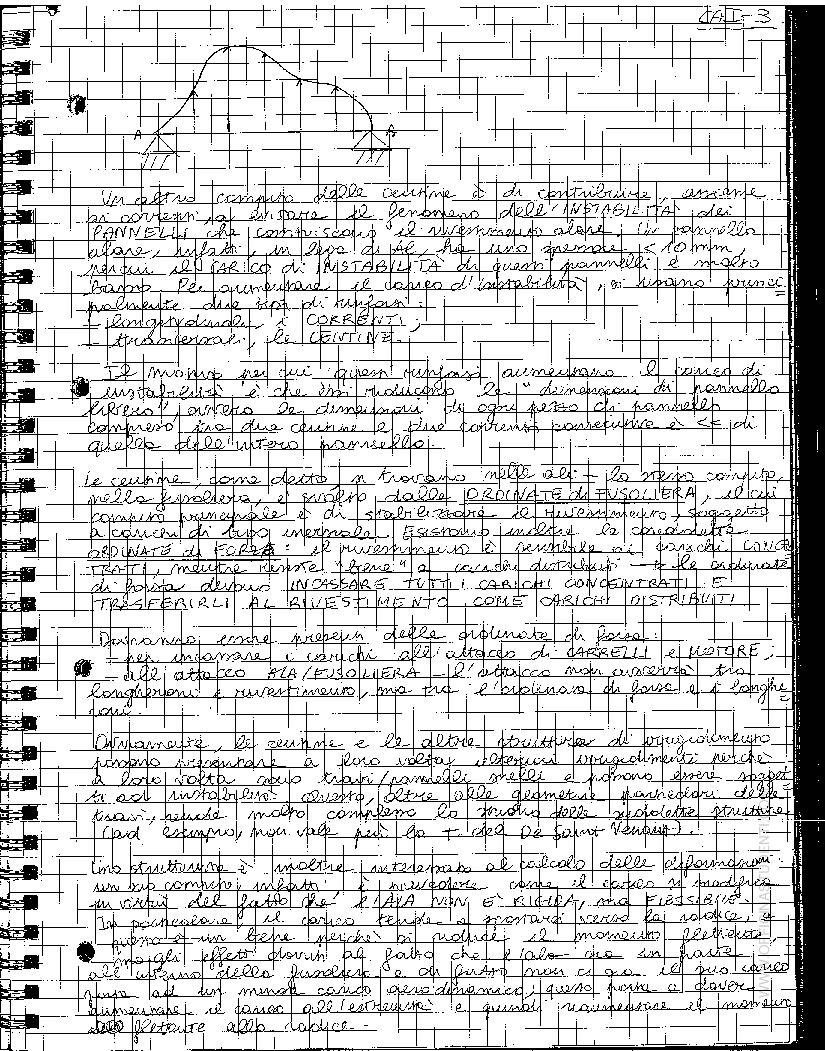 CAI-3
A B
Un altro compito delle centine è di contribuire, assieme
ai correnti, a evitare il fenomeno dell'INSTABILITÀ dei
PANNELLI che costituiscono il rivestimento alare. Un pannello
alare, infatti, in lega di Al, ha uno spessore < 10 mm,
percui il CARICO di INSTABILITÀ di questi pannelli è molto
basso. Per aumentare il carico d'instabilità, si usano princi
palmente due tipi di rinforzi:
- longitudinali, i CORRENTI;
- trasversali, le CENTINE.
Il motivo per cui questi rinforzi aumentano il carico di
instabilità è che essi riducono le "dimensioni di pannello
libero", ovvero le dimensioni di ogni pezzo di pannello
compreso tra due centine e due correnti consecutive è << di
quello dell'intero pannello.
Le centine, come detto, si trovano nelle ali - lo stesso compito,
nella fusoliera, è svolto dalle ORDINATE di FUSOLIERA, il cui
compito principale è di stabilizzare il rivestimento, soggetto
a carichi di tipo inerziale. Esistono inoltre le cosiddette
ORDINATE di FORZA: il rivestimento è sensibile ai carichi CONCEN
TRATI, mentre resiste "bene" a carichi distribuiti → le ordinate
di forza devono INCASSARE TUTTI I CARICHI CONCENTRATI E
TRASFERIRLI AL RIVESTIMENTO COME CARICHI DISTRIBUITI
Dovranno essere presenti delle ordinate di forza:
- per incassare i carichi all'attacco di CARRELLI e MOTORE;
- all'attacco ALA/FUSOLIERA - l'attacco non avverrà tra
longheroni e rivestimento, ma tra l'ordinata di forza e i longhe
roni.
Ovviamente, le centine e le altre strutture di irrigidimento
possono presentare a loro volta ulteriori irrigidimenti perché
a loro volta sono travi/pannelli snelli e possono essere sogget
ti ad instabilità. Questo, oltre alle geometrie particolari delle
travi, rende molto complesso lo studio delle suddette strutture
(ad esempio, non vale più la t del De Saint Venant).
Uno strutturista è inoltre interessato al calcolo delle deformazioni:
un suo compito, infatti, è prevedere come il carico si modifica
in virtù del fatto che l'ALA NON È RIGIDA, ma FLESSIBILE.
In particolare, il carico tende a spostarsi verso la radice, e
questo è un bene perché si riduce il momento flettente,
ma gli effetti dovuti al fatto che l'ala sta in parte
all'interno della fusoliera e di fatto non ci dà il suo carico
porta ad un minor carico aerodinamico; questo porta a dover
aumentare il carico all'estremità e quindi riaumentare il momento
flettente alla radice.